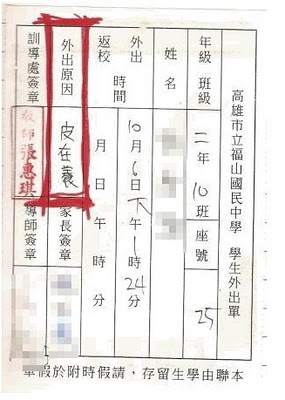 高雄市立福山國民中學 學生外出單
年級 班級 二年10班 座號 25
姓名
外出 時間 10月6日下午1時24分
返校 月 日 午 時 分
外出原因 皮在癢 家長簽章
訓導處簽章 教師張惠琪 導師簽章
本聯由學生留存，請假時附於假單